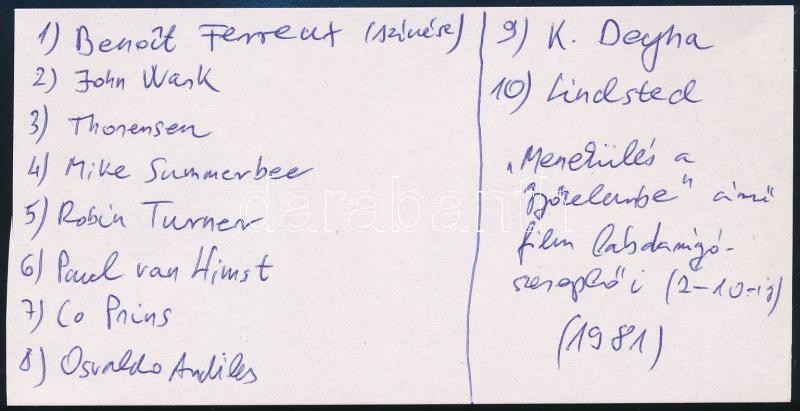 1) Benoît Ferreux (színész)
2) John Wark
3) Thorensen
4) Mike Summerbee
5) Robin Turner
6) Paul van Himst
7) Co Prins
8) Osvaldo Ardiles
9) K. Deyna
10) Lindsted
„Menekülés a
győzelembe" című
film labdarúgó-
szereplői (2-10-ig)
(1981)
darabanth